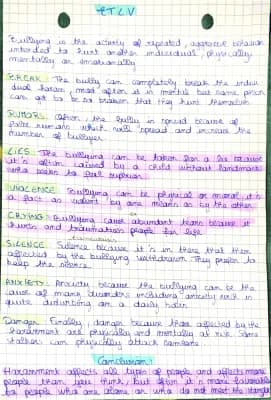 ETLV
Bullying is the activity of repeated, agressive behavior
intended to hurt another individual, physically
mentally or emotionally
BREAK: The bully can completely break the indivi
dual haram, most often it is mental but some person
can get to be so broken that they hurt themselves
RUMORS: Often, the bully is spread because of
false rumors which will spread and increase the
number of bullyer
LIES: The bullying can be taken for a lie because
it's often caused by a child without landmarks
who seeks to feel superior
VIOLENCE: Bullying can be physical or moral, it's
a fact as violent by one means or by the other
CRYING: Bullying cause abundant tears because it
hurts and traumatises people for life
SILENCE: Silence because it's in there that them
affected by the bullying withdrawn. They prefer to
keep the silence.
ANXIETY: Anxiety because the bullying can be the
cause of many disorders including anxiety such is
quite disturbing on a daily basis
Danger: Finally, danger because those affected by the
harassment are physically and mentally at risk. Some
stalker can physically attack someone
Conclusion:
Harassment affects all types of people and affects more
people than you think, but often it is more favorable
to people who are alone or who do not meet the